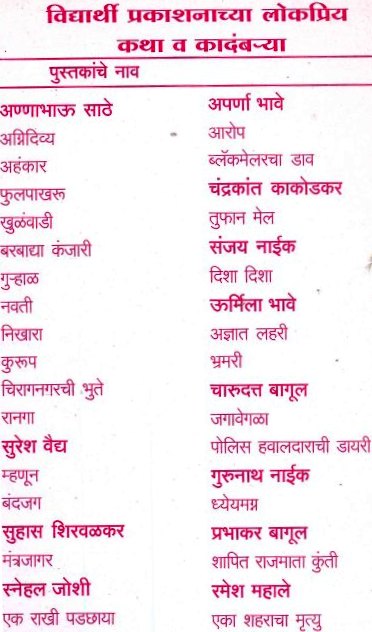 विद्यार्थी प्रकाशनाच्या लोकप्रिय
कथा व कादंबऱ्या
पुस्तकांचे नाव
अण्णाभाऊ साठे
अग्निदिव्य
अहंकार
फुलपाखरू
खुळंवाडी
बरबाद्या कंजारी
गुऱ्हाळ
नवती
निखारा
कुरूप
चिरागनगरची भुते
रानगा
सुरेश वैद्य
म्हणून
बंदजग
सुहास शिरवळकर
मंत्रजागर
स्नेहल जोशी
एक राखी पडछाया
अपर्णा भावे
आरोप
ब्लॅकमेलरचा डाव
चंद्रकांत काकोडकर
तुफान मेल
संजय नाईक
दिशा दिशा
ऊर्मिला भावे
अज्ञात लहरी
भ्रमरी
चारुदत्त बागूल
जगावेगळा
पोलिस हवालदाराची डायरी
गुरुनाथ नाईक
ध्येयमग्न
प्रभाकर बागूल
शापित राजमाता कुंती
रमेश महाले
एका शहराचा मृत्यु